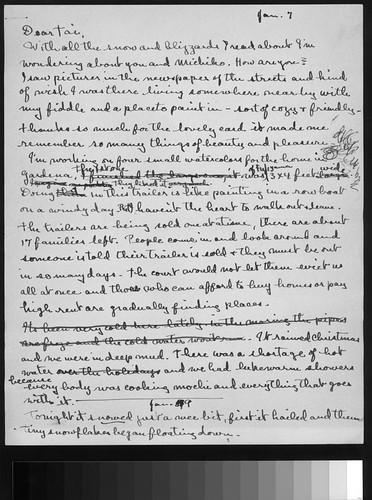 Jan. 7
Dear Tai,
With all the snow and blizzards I read about I'm
wondering about you and Michiko. How are you-?
I saw pictures in the newspaper of the streets and kind
of wish I was there living somewhere nearby with
my fiddle and a place to paint in - sort of cozy & friendly -
thanks so much for the lovely card it made me
remember so many things of beauty and pleasure
I'm working on four small watercolors for the home in
Gardena, I finished the large one, it was 3x4 feet
they liked it
Doing them in this trailer is like painting in a row boat
on a windy day. But haven't the heart to walk out some.
the trailers are being sold one at a time, there are about
17 families left. People come in and look around and
someone is told their trailer is sold & they must be out
in so many days - the court would not let them evict us
all at once and those who can afford to buy homes or pay
high rent are gradually finding places.
Its been very cold here lately in the morning the pipes
are froze and the cold water wont run. It rained Christmas
and we were in deep mud. There was a shortage of hot
water over the holidays and we had lukewarm showers
because
every body was cooking mochi and everything that goes
with it.
Jan. 9
Tonight it snowed just a wee bit, first it hailed and then
tiny snowflakes began floating down.